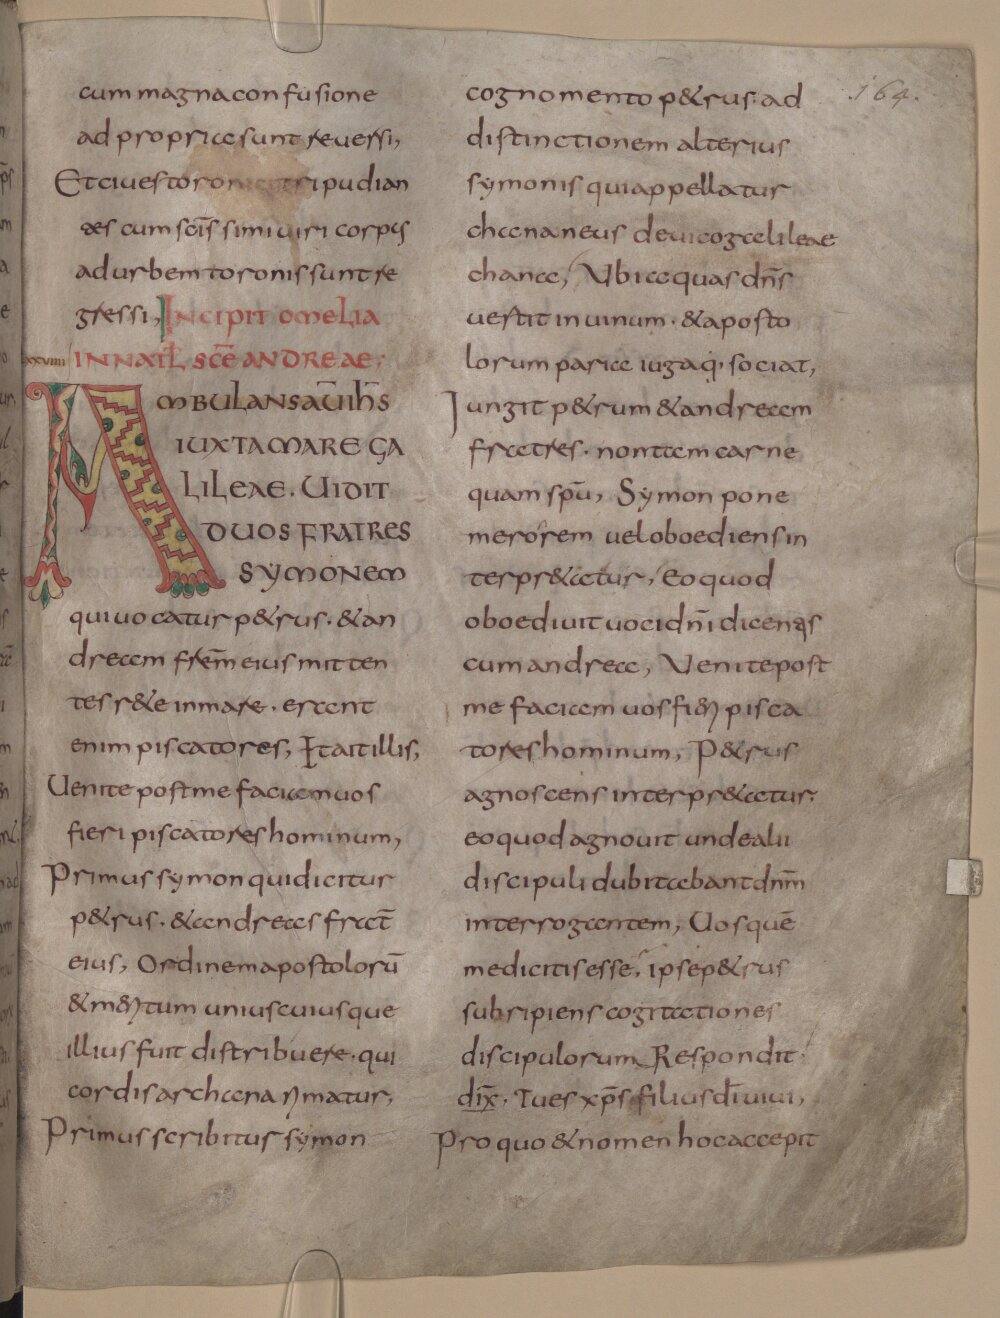 164.
cum magna confusione
ad propria sunt reversi,
Et cives toronici tripudian
tes cum scis̄simi viri corpꝰ
ad urbem toronis sunt re
gressi, INCIPIT OMELIA
xxviiii IN NATL̄ SCĒ ANDREAE.
AMBULANS AŪ IH̄S
IUXTA MARE GA
LILEAE. VIDIT
DUOS FRATRES
SYMONEM
qui vocatur p&rus. & an
dream frēm eius mitten
tes r&e in mare. erant
enim piscatores, Et ait illis,
Venite post me faciam vos
fieri piscatores hominum,
Primus symon qui dicitur
p&rus. & andreas frat̄
eius, Ordinem apostolorū
& meritum uniuscuiusque
illius fuit distribuere. qui
cordis archana rimatur,
Primus scribitus symon
cognomento p&rus. ad
distinctionem alterius
symonis qui appellatur
chananeus de vico galileae
chanae, Ubi aquas dn̄s
vertit in vinum. & aposto
lorum paria iugaq; sociat,
Iungit p&rum & andream
fratres. non tam carne
quam spū, Symon pone
merorem vel oboediens in
terpr&atur, Eo quod
oboedivit voci dn̄i dicenas
cum andrea, Venite post
me faciam vos fieri pisca
tores hominum, P&rus
agnoscens interpr&atur.
eo quod agnovit unde alii
discipuli dubitabant dn̄m
interrogantem, Vos quē
me dicitis esse, ipse p&rus
subripiens cogitationes
discipulorum Respondit.
dix̄. Tu es xp̄s filius dī vivi,
Pro quo & nomen hoc accepit